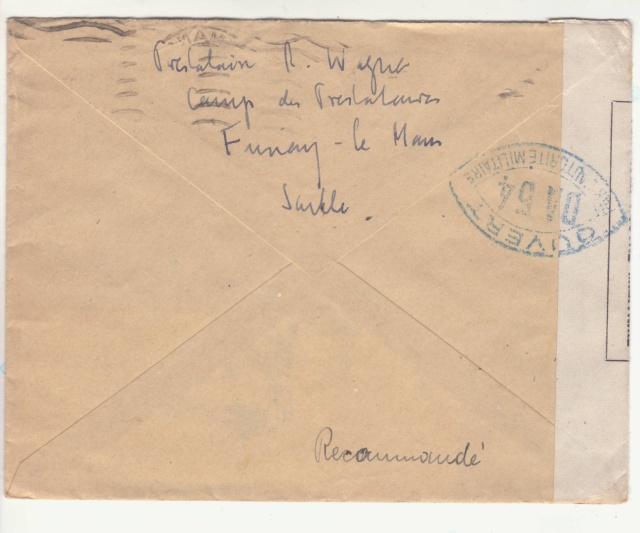 Prestataire R. Wagner
Camp des Prestataires
Fusnay - le Mans
Sarthe.
OUVERT
AUTORITÉ MILITAIRE
Recommandé